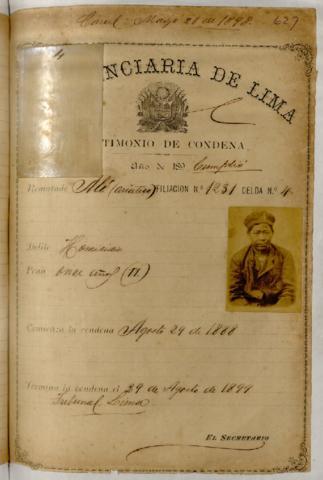 Carcel - Mayo 21 de 1898. 627
NCIARIA DE LIMA
TIMONIO DE CONDENA.
Año de 189 Cumplió
Rematado Alí (asiático) FILIACION N.º 1231 CELDA N.º 4
Delito Homicidio
Pena once años (11)
Comienza la condena Agosto 29 de 1888
Termina la condena el 29 de Agosto de 1899
Tribunal Lima
EL SECRETARIO